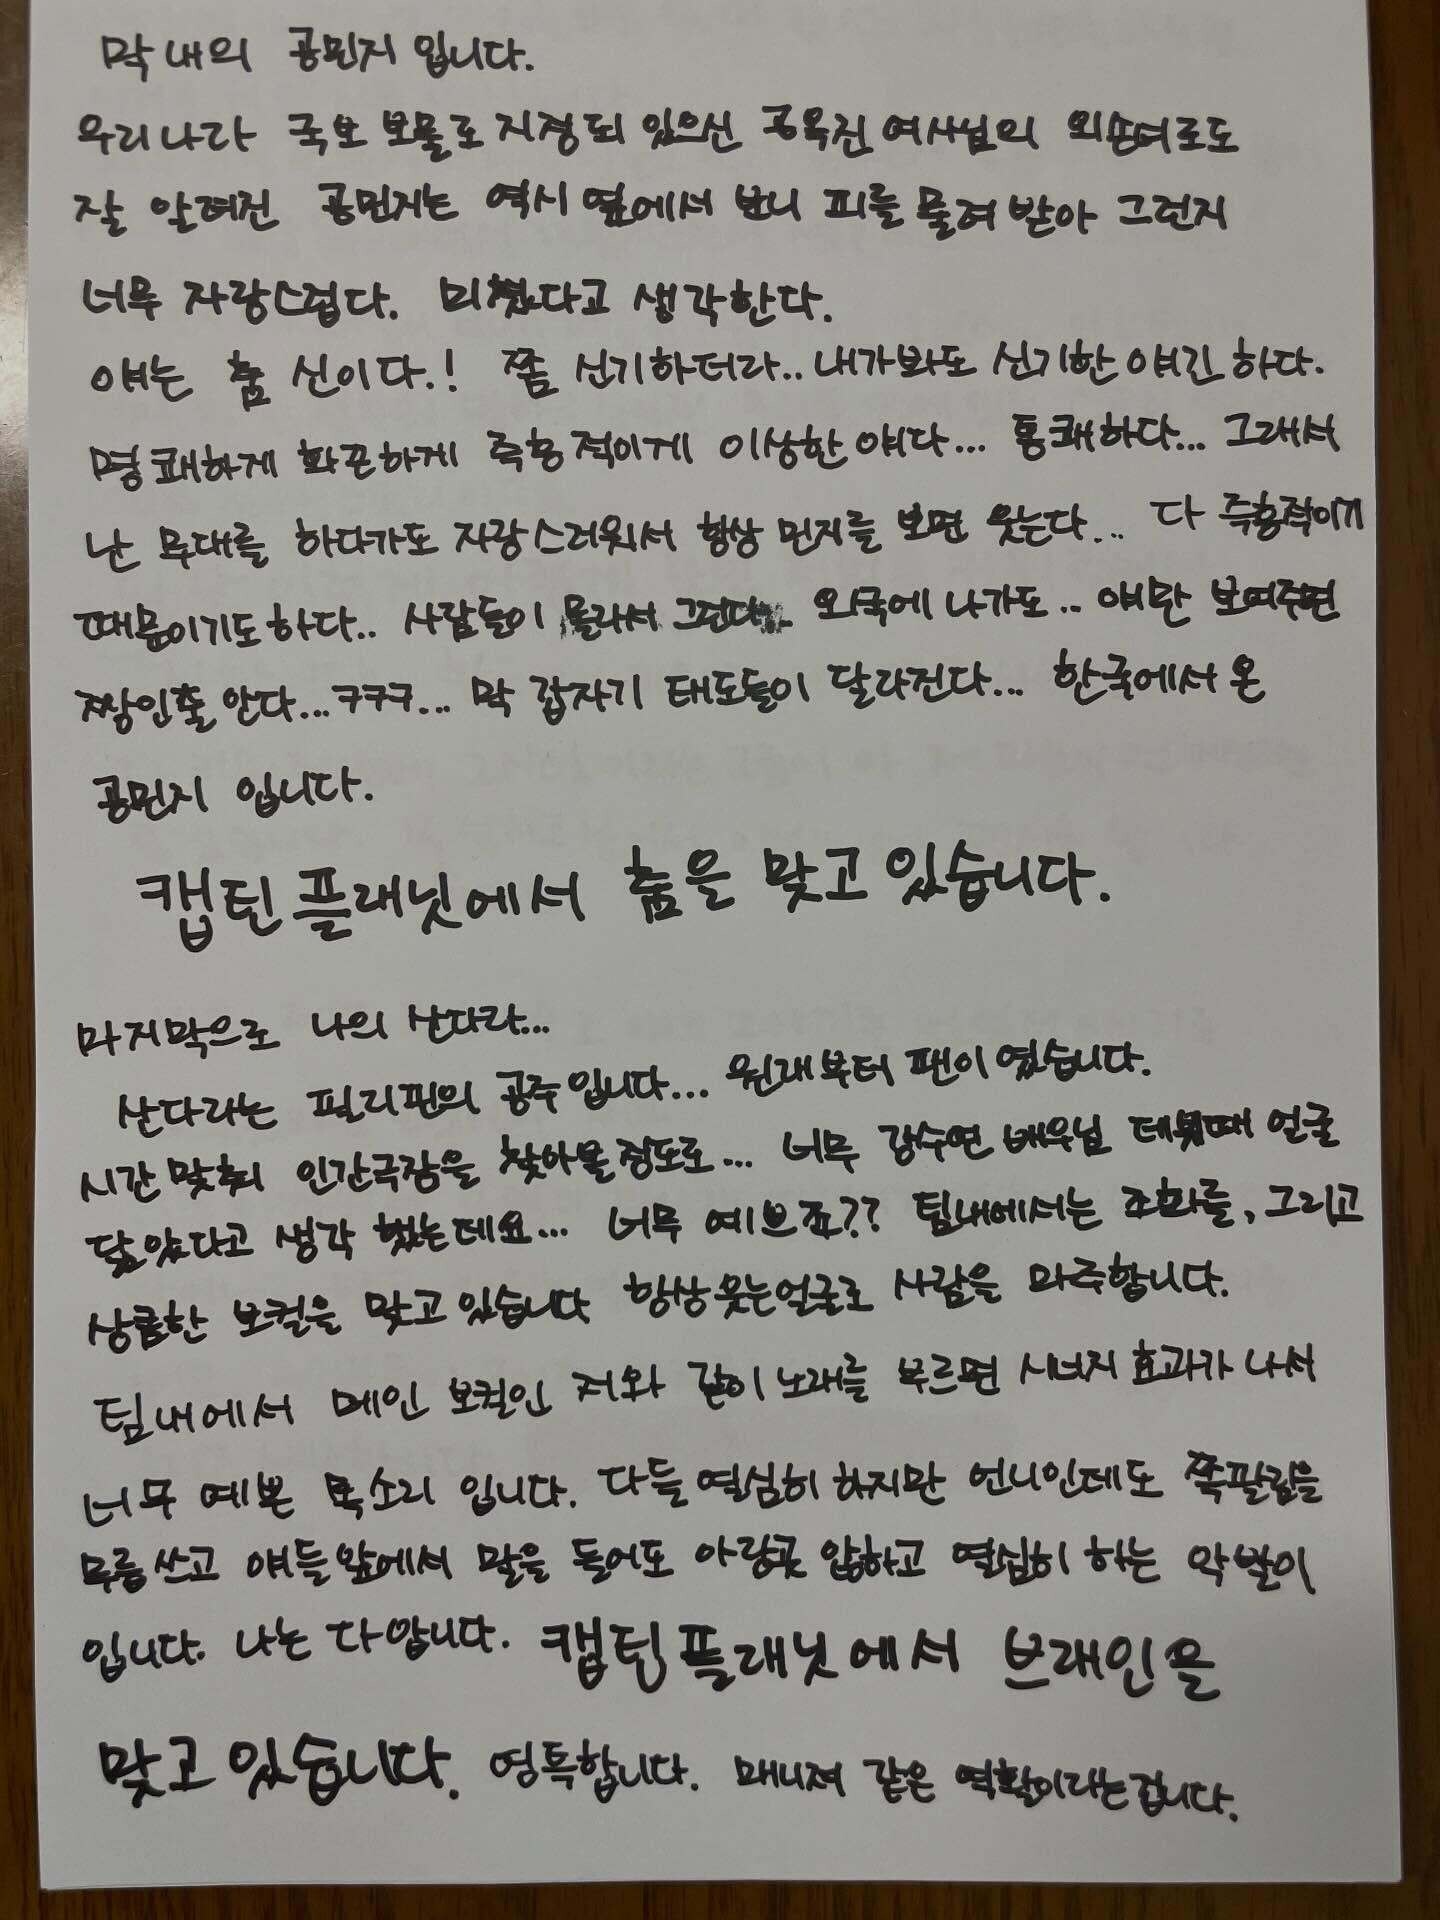 막내의 공민지 입니다.
우리나라 국보 보물로 지정되 있으신 공옥진 여사님의 외손녀로도
잘 알려진 공민지는 역시 옆에서 보니 피를 물려 받아 그런지
너무 자랑스럽다. 미쳤다고 생각한다.
얘는 춤 신이다.! 쫌 신기하더라.. 내가봐도 신기한 얘긴 하다.
명쾌하게 화끈하게 즉흥적이게 이상한 얘다... 통쾌하다... 그래서
난 무대를 하다가도 자랑스러워서 항상 민지를 보면 웃는다... 다 즉흥적이기
때문이기도하다.. 사람들이 몰라서 그런다.. 외국에 나가도.. 얘만 보여주면
짱인줄 안다...ㅋㅋㅋ... 막 갑자기 태도들이 달라진다... 한국에서 온
공민지 입니다.
캡틴플래닛에서 춤을 맞고 있습니다.
마지막으로 나의 산다라...
산다라는 필리핀의 공주입니다... 원래부터 팬이 였습니다.
시간 맞춰 인간극장을 찾아볼 정도로... 너무 강수연 배우님 데뷔때 얼굴
닮았다고 생각 했는데요... 너무 예쁘죠?? 팀내에서는 조화를, 그리고
상큼한 보컬을 맞고 있습니다 항상 웃는얼굴로 사람을 마주합니다.
팀내에서 메인 보컬인 저와 같이 노래를 부르면 시너지 효과가 나서
너무 예쁜 목소리 입니다. 다들 열심히 하지만 언니인데도 쪽팔림을
무릅쓰고 얘들앞에서 말을 들어도 아랑곳 않하고 열심히 하는 악발이
입니다. 나는 다압니다. 캡틴플래닛에서 브래인을
맞고 있습니다. 영특합니다. 매니져 같은 역활이라는겁니다.